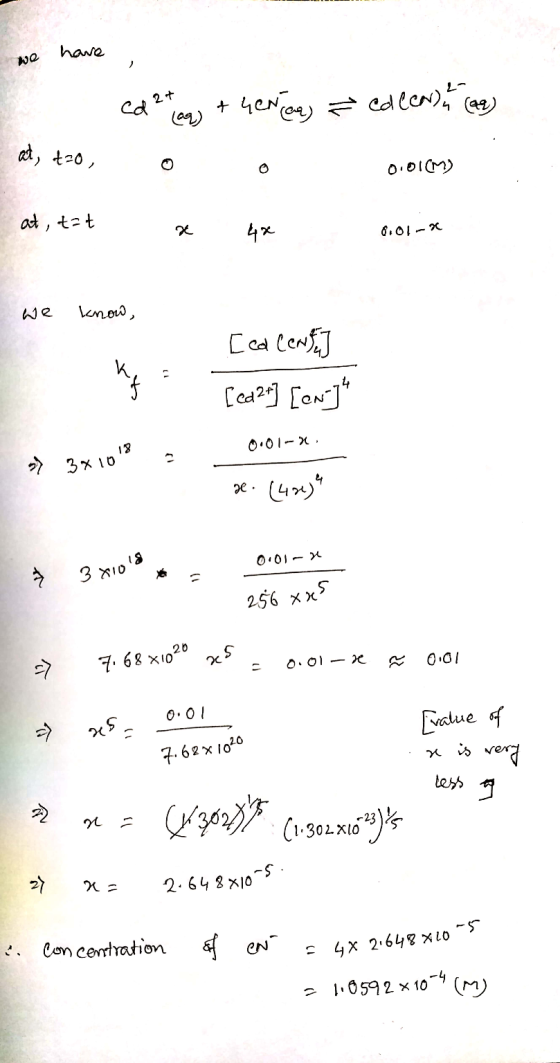 we have,
Cd²⁺(aq) + 4CN⁻(aq) ⇌ Cd(CN)₄²⁻(aq)
at, t=0, 0 0 0.01(M)
at, t=t x 4x 0.01-x
we know,
k_f = [Cd(CN)₄²⁻] / [Cd²⁺] [CN⁻]⁴
⇒ 3×10¹⁸ = 0.01-x. / x. (4x)⁴
⇒ 3×10¹⁸ = 0.01-x / 256 × x⁵
⇒ 7.68×10²⁰ x⁵ = 0.01-x ≈ 0.01
⇒ x⁵ = 0.01 / 7.68×10²⁰ [value of
x is very
less]
⇒ x = (1.302×10⁻²³)^1/5
⇒ x = 2.648×10⁻⁵.
∴ Concentration of CN⁻ = 4× 2.648×10⁻⁵
= 1.0592×10⁻⁴ (M)